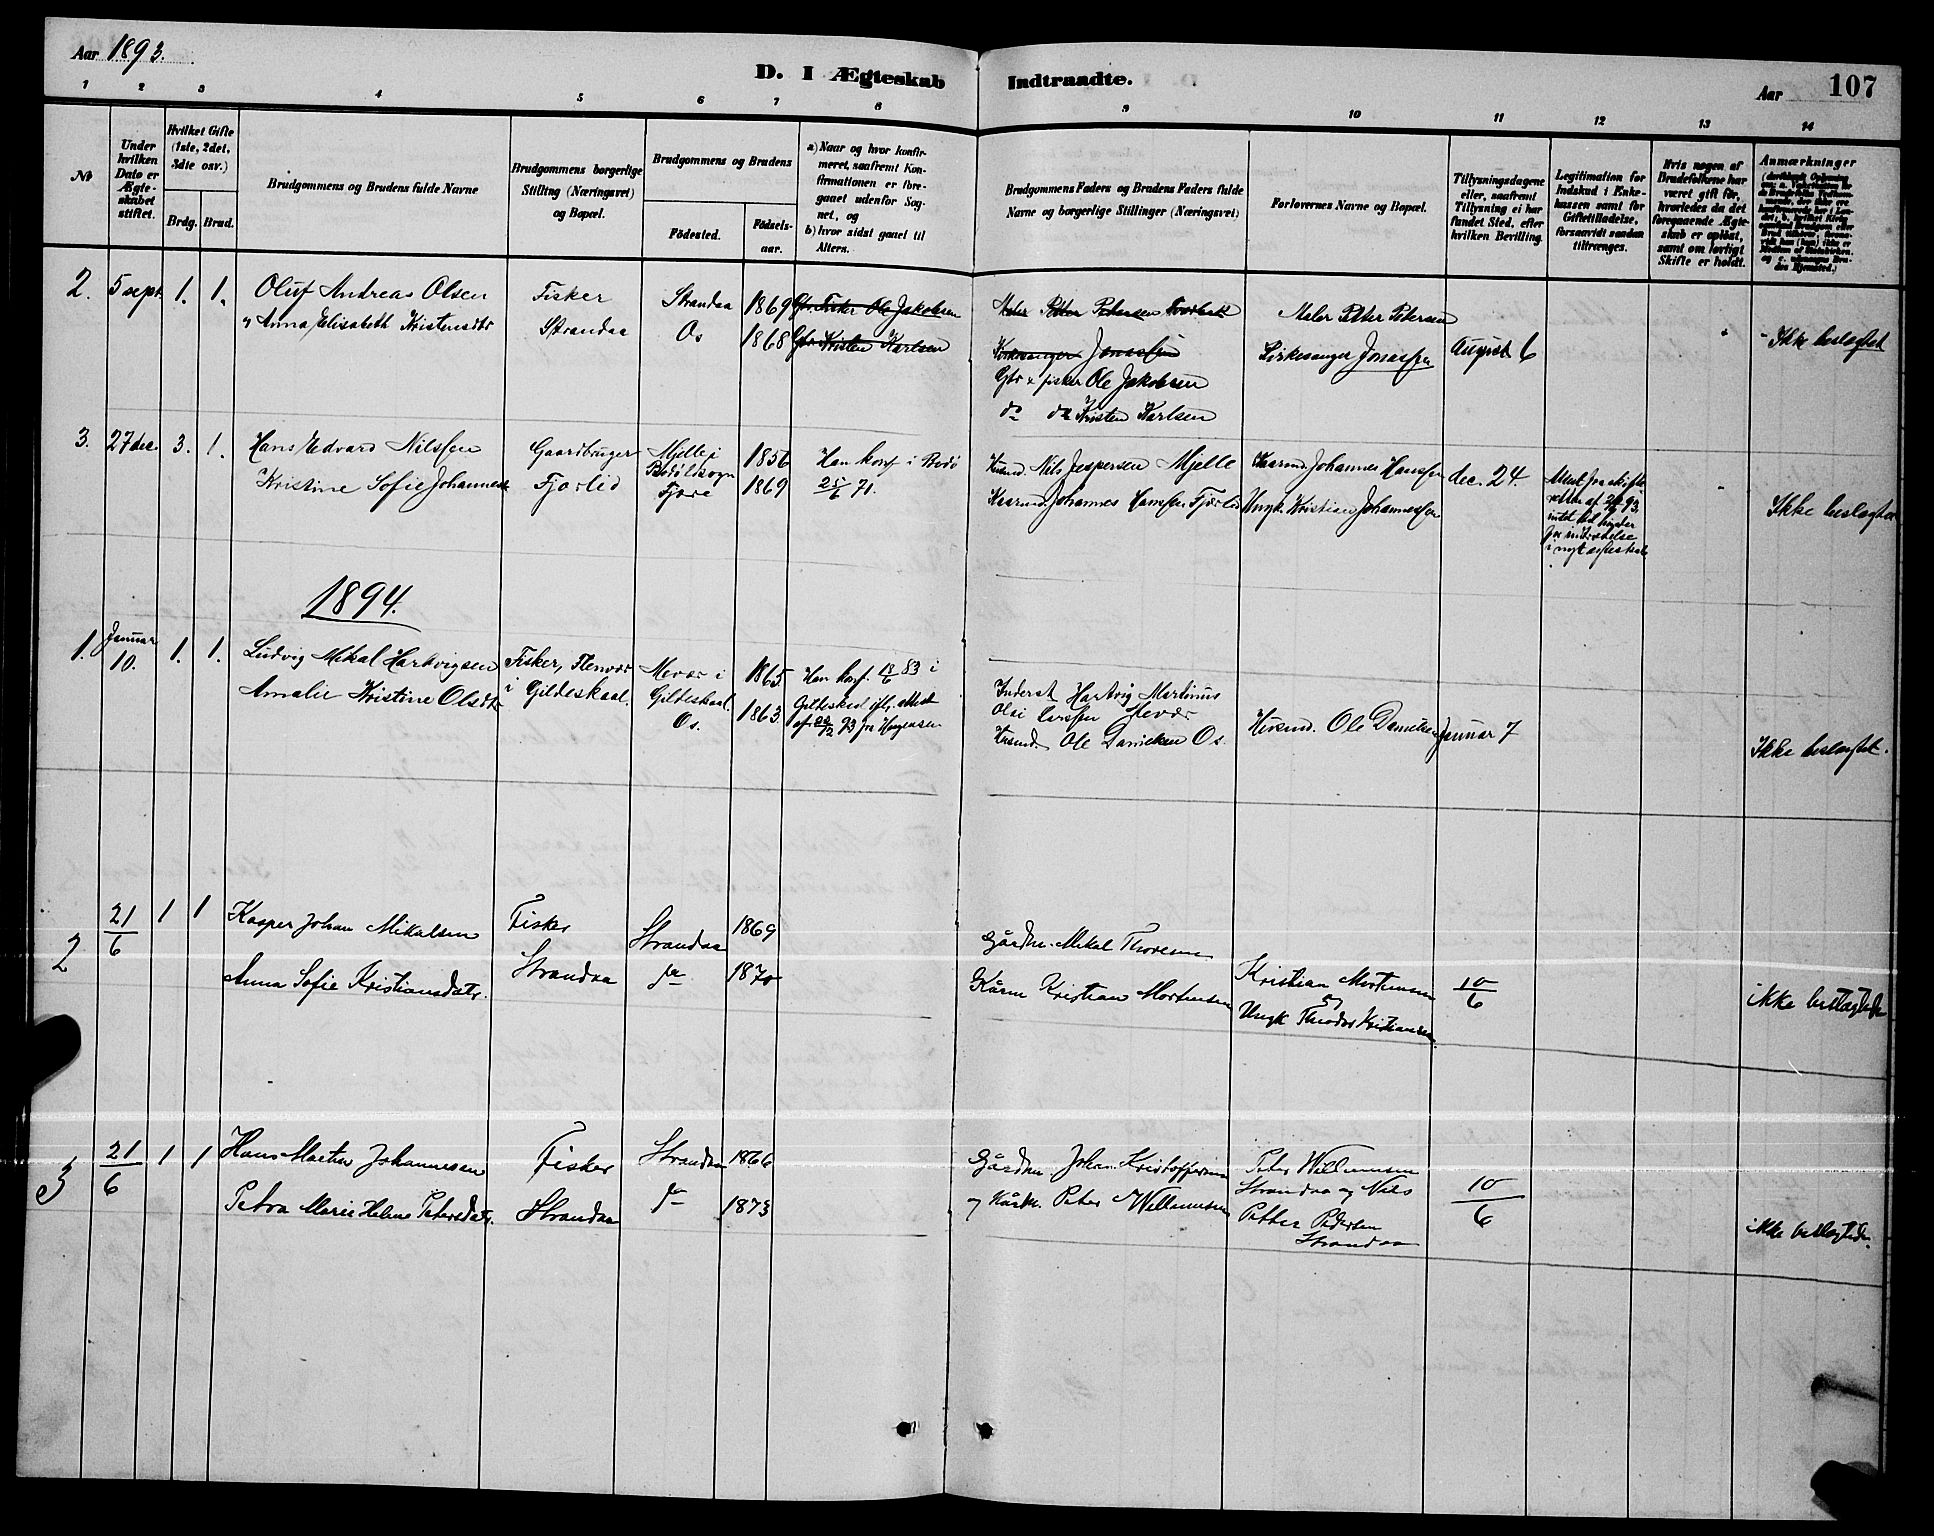 Aar 1893.
D. I Ægteskab Indtraadte.
Aar
107
1 2 3 4 5 6 7 8 9 10 11 12 13 14
№
Under hvilken Dato er Ægteskabet stiftet.
Hvilket Gifte (1ste, 2det, 3die osv.)
Brdg. Brud.
Brudgommens og Brudens fulde Navne
Brudgommens borgerlige Stilling (Næringsvei) og Bopæl.
Brudgommens og Brudens
Fødested.
Fødselsaar.
a) Naar og hvor konfirmeret, saafremt Konfirmationen er foregaaet udenfor Sognet, og
b) hvor sidst gaaet til Alters.
Brudgommens Faders og Brudens Faders fulde Navne og borgerlige Stillinger (Næringsvei)
Forlovernes Navne og Bopæl.
Tillysningsdagene eller, saafremt Tillysning ei har fundet Sted, efter hvilken Bevilling.
Legitimation for Indskud i Enkekassen samt for Giftetilladelse, forsaavidt saadan tiltrænges.
Hvis nogen af Brudefolkene har været gift før, hvorledes da det foregaaende Ægteskab er opløst, samt om lovligt Skifte er holdt.
Anmærkninger
2. 5 sept. 1. 1. Oluf Andreas Olsen Fisker Strandaa 1869 Gbr. Fisker Ole Jakobsen Maler Petter Petersen Maler Petter Petersen
" Anna Elisabeth Kristensdtr Strandaa Os 1868 Gbr. Kristen Karlsen Kirkesanger Jonassen Kirkesanger Jonassen August 6 Ikke beslægtet
Gbr & fisker Ole Jakobsen
do do Kristen Karlsen
3. 27 dec. 3. 1. Hans Edvard Nilssen Gaardbruger Mjelle i Bodö Lsogn 1856 Han konf. i Bodö Husmd. Nils Jespersen Mjelle Kaarmd. Johannes Hanssen dec. 24.
Kristine Sofie Johannesdr Fjorlid Fjære 1869 25/6 71. Kaarmd. Johannes Hanssen Fjorlid Ungk. Kristian Johannessen Ikke beslægtet
Attest fra skifteretten af 93, intet til hinder for indtrædelse i nyt ægteskab
1894.
1. Januar 10. 1. 1. Ludvig Mikal Hartvigsen Fisker, Flenvær Mevær i 1865. Han konf. 83 i Inderst Hartvig Martinus
Amalie Kristine Olsdtr i Gildeskaal. Gildeskaal. Os. 1863. Gildeskaal ifl. attest af 93 fra Husmd. Ole Danielsen Os. Husmd. Ole Danielsen Januar 7 Ikke beslægtet.
2 21/6 1 1 Kasper Johan Mikalsen Fisker Strandaa 1869 Gårdm. Mikal Thoresen
Anna Sofie Kristiansdatr. Strandaa do 1870 Kårm Kristian Mortensen Kristian Mortensen og 10/6 ikke beslægtede
Ungk Theodor Kristiansen
3 21/6 1 1 Hans Martin Johannesen Fisker Strandaa 1866 Gårdm Johan Kristoffersen Peter Willumsen
Petra Marie Helene Petersdatr. Strandaa do 1873 og Kårm. Peter Willumsen Strandaa og Nils 10/6
Petter Pedersen
Strandaa ikke beslægtede.